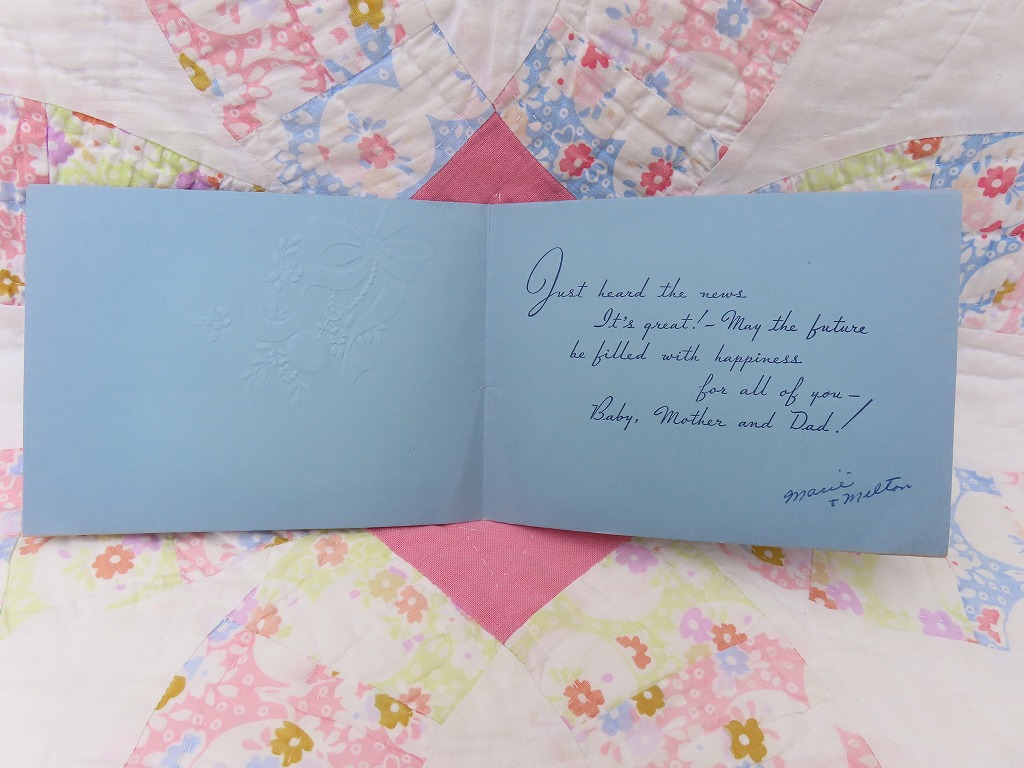 Just heard the news
It's great! – May the future
be filled with happiness
for all of you –
Baby, Mother and Dad!
Marie
& Melton